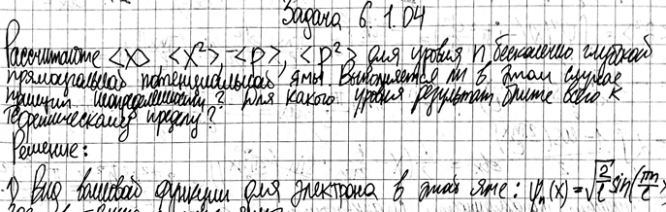 Задача 6.1.04
Рассчитайте <x>, <x²>, <p>, <p²> для уровня n бесконечно глубокой
прямоугольной потенциальной ямы. Выполняется ли в этом случае
принцип неопределенности? Для какого уровня результат ближе всего к
теоретическому пределу?
Решение:
1) Вид волновой функции для электрона в этой яме: ψₙ(x) = √(2/l) sin(πn/l